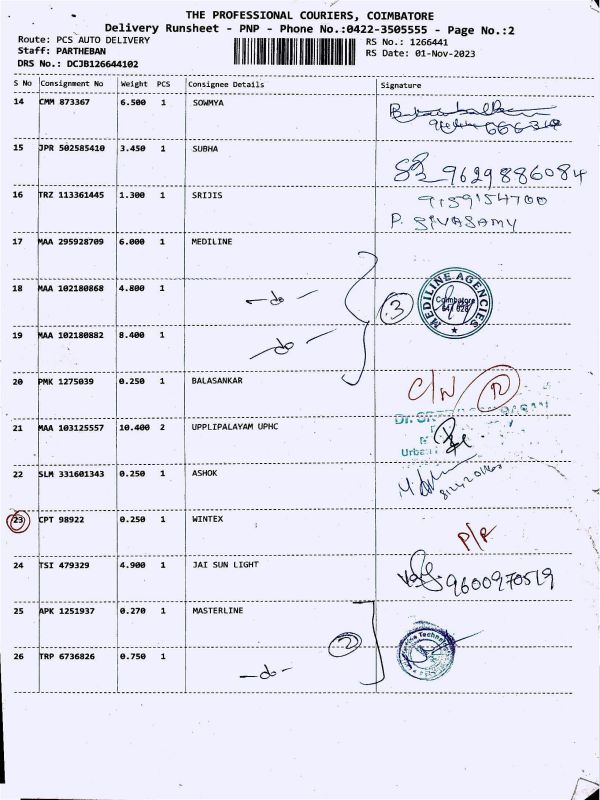 THE PROFESSIONAL COURIERS, COIMBATORE
Delivery Runsheet - PNP - Phone No.:0422-3505555 - Page No.:2
Route: PCS AUTO DELIVERY
RS No.: 1266441
Staff: PARTHEBAN
RS Date: 01-Nov-2023
DRS No.: DCJB126644102
S No Consignment No Weight PCS Consignee Details Signature
14 CMM 873367 6.500 1 SOWMYA
15 JPR 502585410 3.450 1 SUBHA
9629886084
16 TRZ 113361445 1.300 1 SRIJIS
9159154700
P. SIVASAMY
17 MAA 295928709 6.000 1 MEDILINE
18 MAA 102180868 4.800 1
-do-
3
MEDILINE AGENCIES
Coimbatore
641 028
19 MAA 102180882 8.400 1
-do-
20 PMK 1275039 0.250 1 BALASANKAR
C/N
21 MAA 103125557 10.400 2 UPPLIPALAYAM UPHC
Urban
22 SLM 331601343 0.250 1 ASHOK
23 CPT 98922 0.250 1 WINTEX
P/R
24 TSI 479329 4.900 1 JAI SUN LIGHT
9600970519
25 APK 1251937 0.270 1 MASTERLINE
2
26 TRP 6736826 0.750 1
-do-